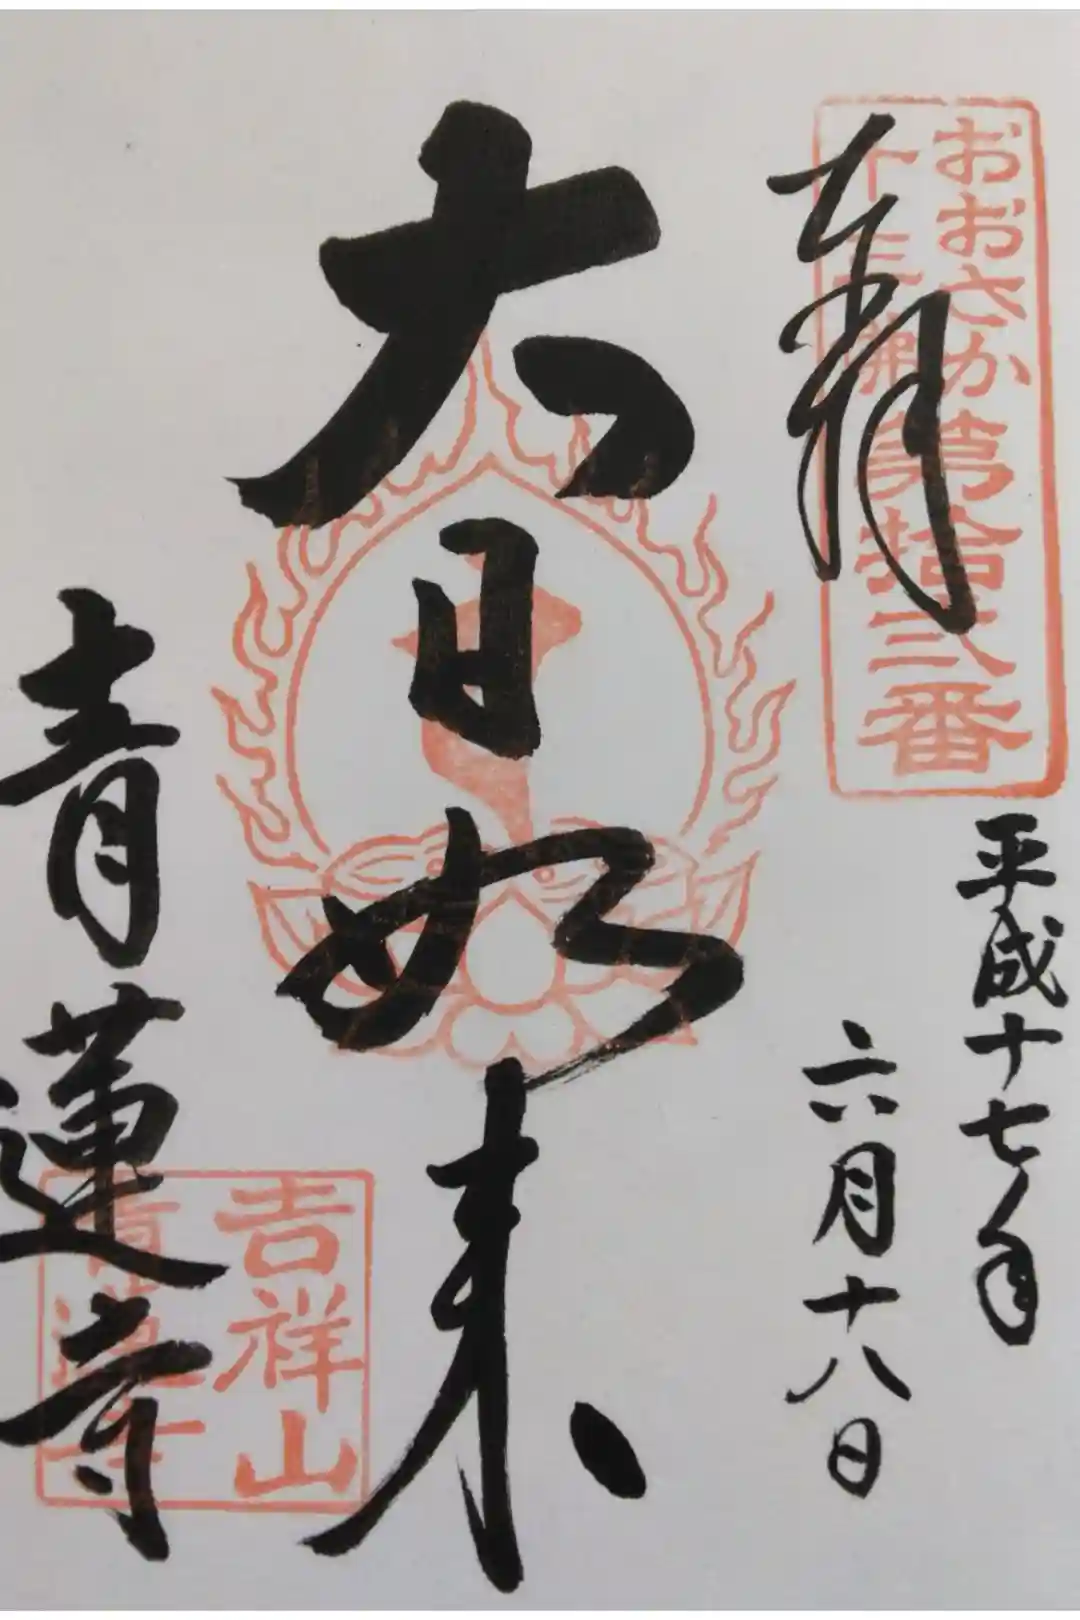 奉拝
おおさか
十三佛
第拾弐番
平成十七年
六月十八日
大日如来
青蓮寺
吉祥山
青蓮寺